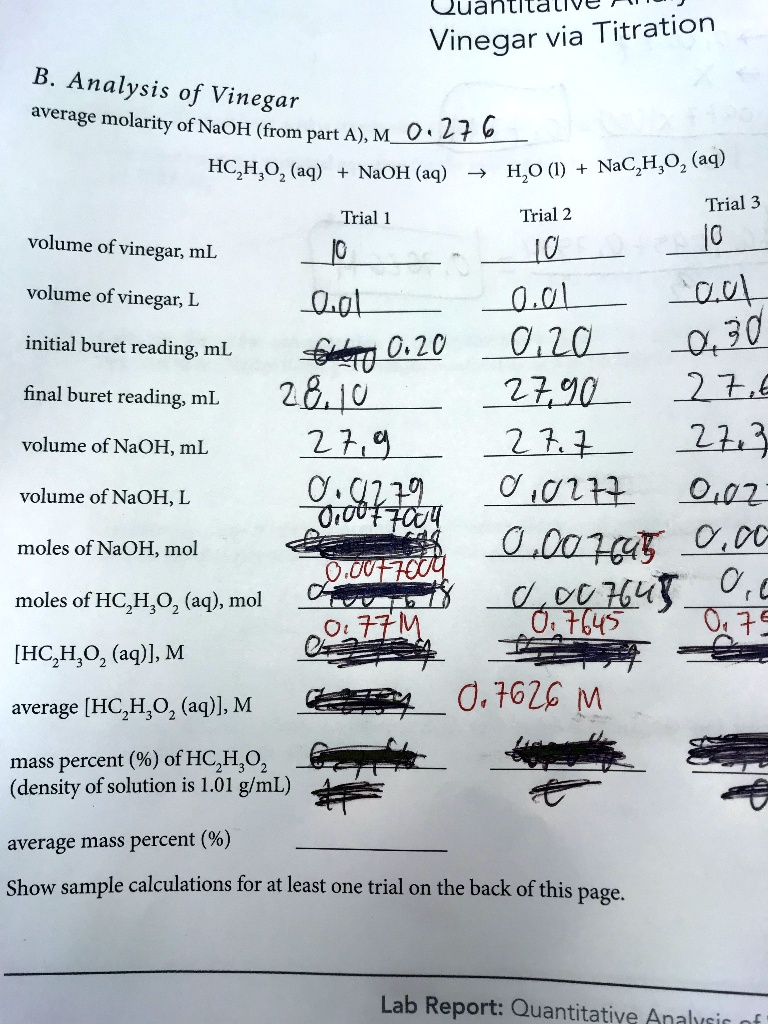 Quantitative
Vinegar via Titration
B. Analysis of Vinegar
average molarity of NaOH (from part A), M 0.276
HC₂H₃O₂ (aq) + NaOH (aq) → H₂O (l) + NaC₂H₃O₂ (aq)
Trial 1 Trial 2 Trial 3
volume of vinegar, mL 10 10 10
volume of vinegar, L 0.01 0.01 0.01
initial buret reading, mL 0.20 0.20 0.30
final buret reading, mL 28.10 27.90 27.6
volume of NaOH, mL 27.9 27.7 27.3
volume of NaOH, L 0.0279 0.0277 0.02
0.0077004
moles of NaOH, mol 0.007645 0.00
0.0077004
moles of HC₂H₃O₂ (aq), mol 0.007645 0.0
0.77M 0.7645 0.75
[HC₂H₃O₂ (aq)], M
average [HC₂H₃O₂ (aq)], M 0.7626 M
mass percent (%) of HC₂H₃O₂
(density of solution is 1.01 g/mL)
average mass percent (%)
Show sample calculations for at least one trial on the back of this page.
Lab Report: Quantitative Analysis of